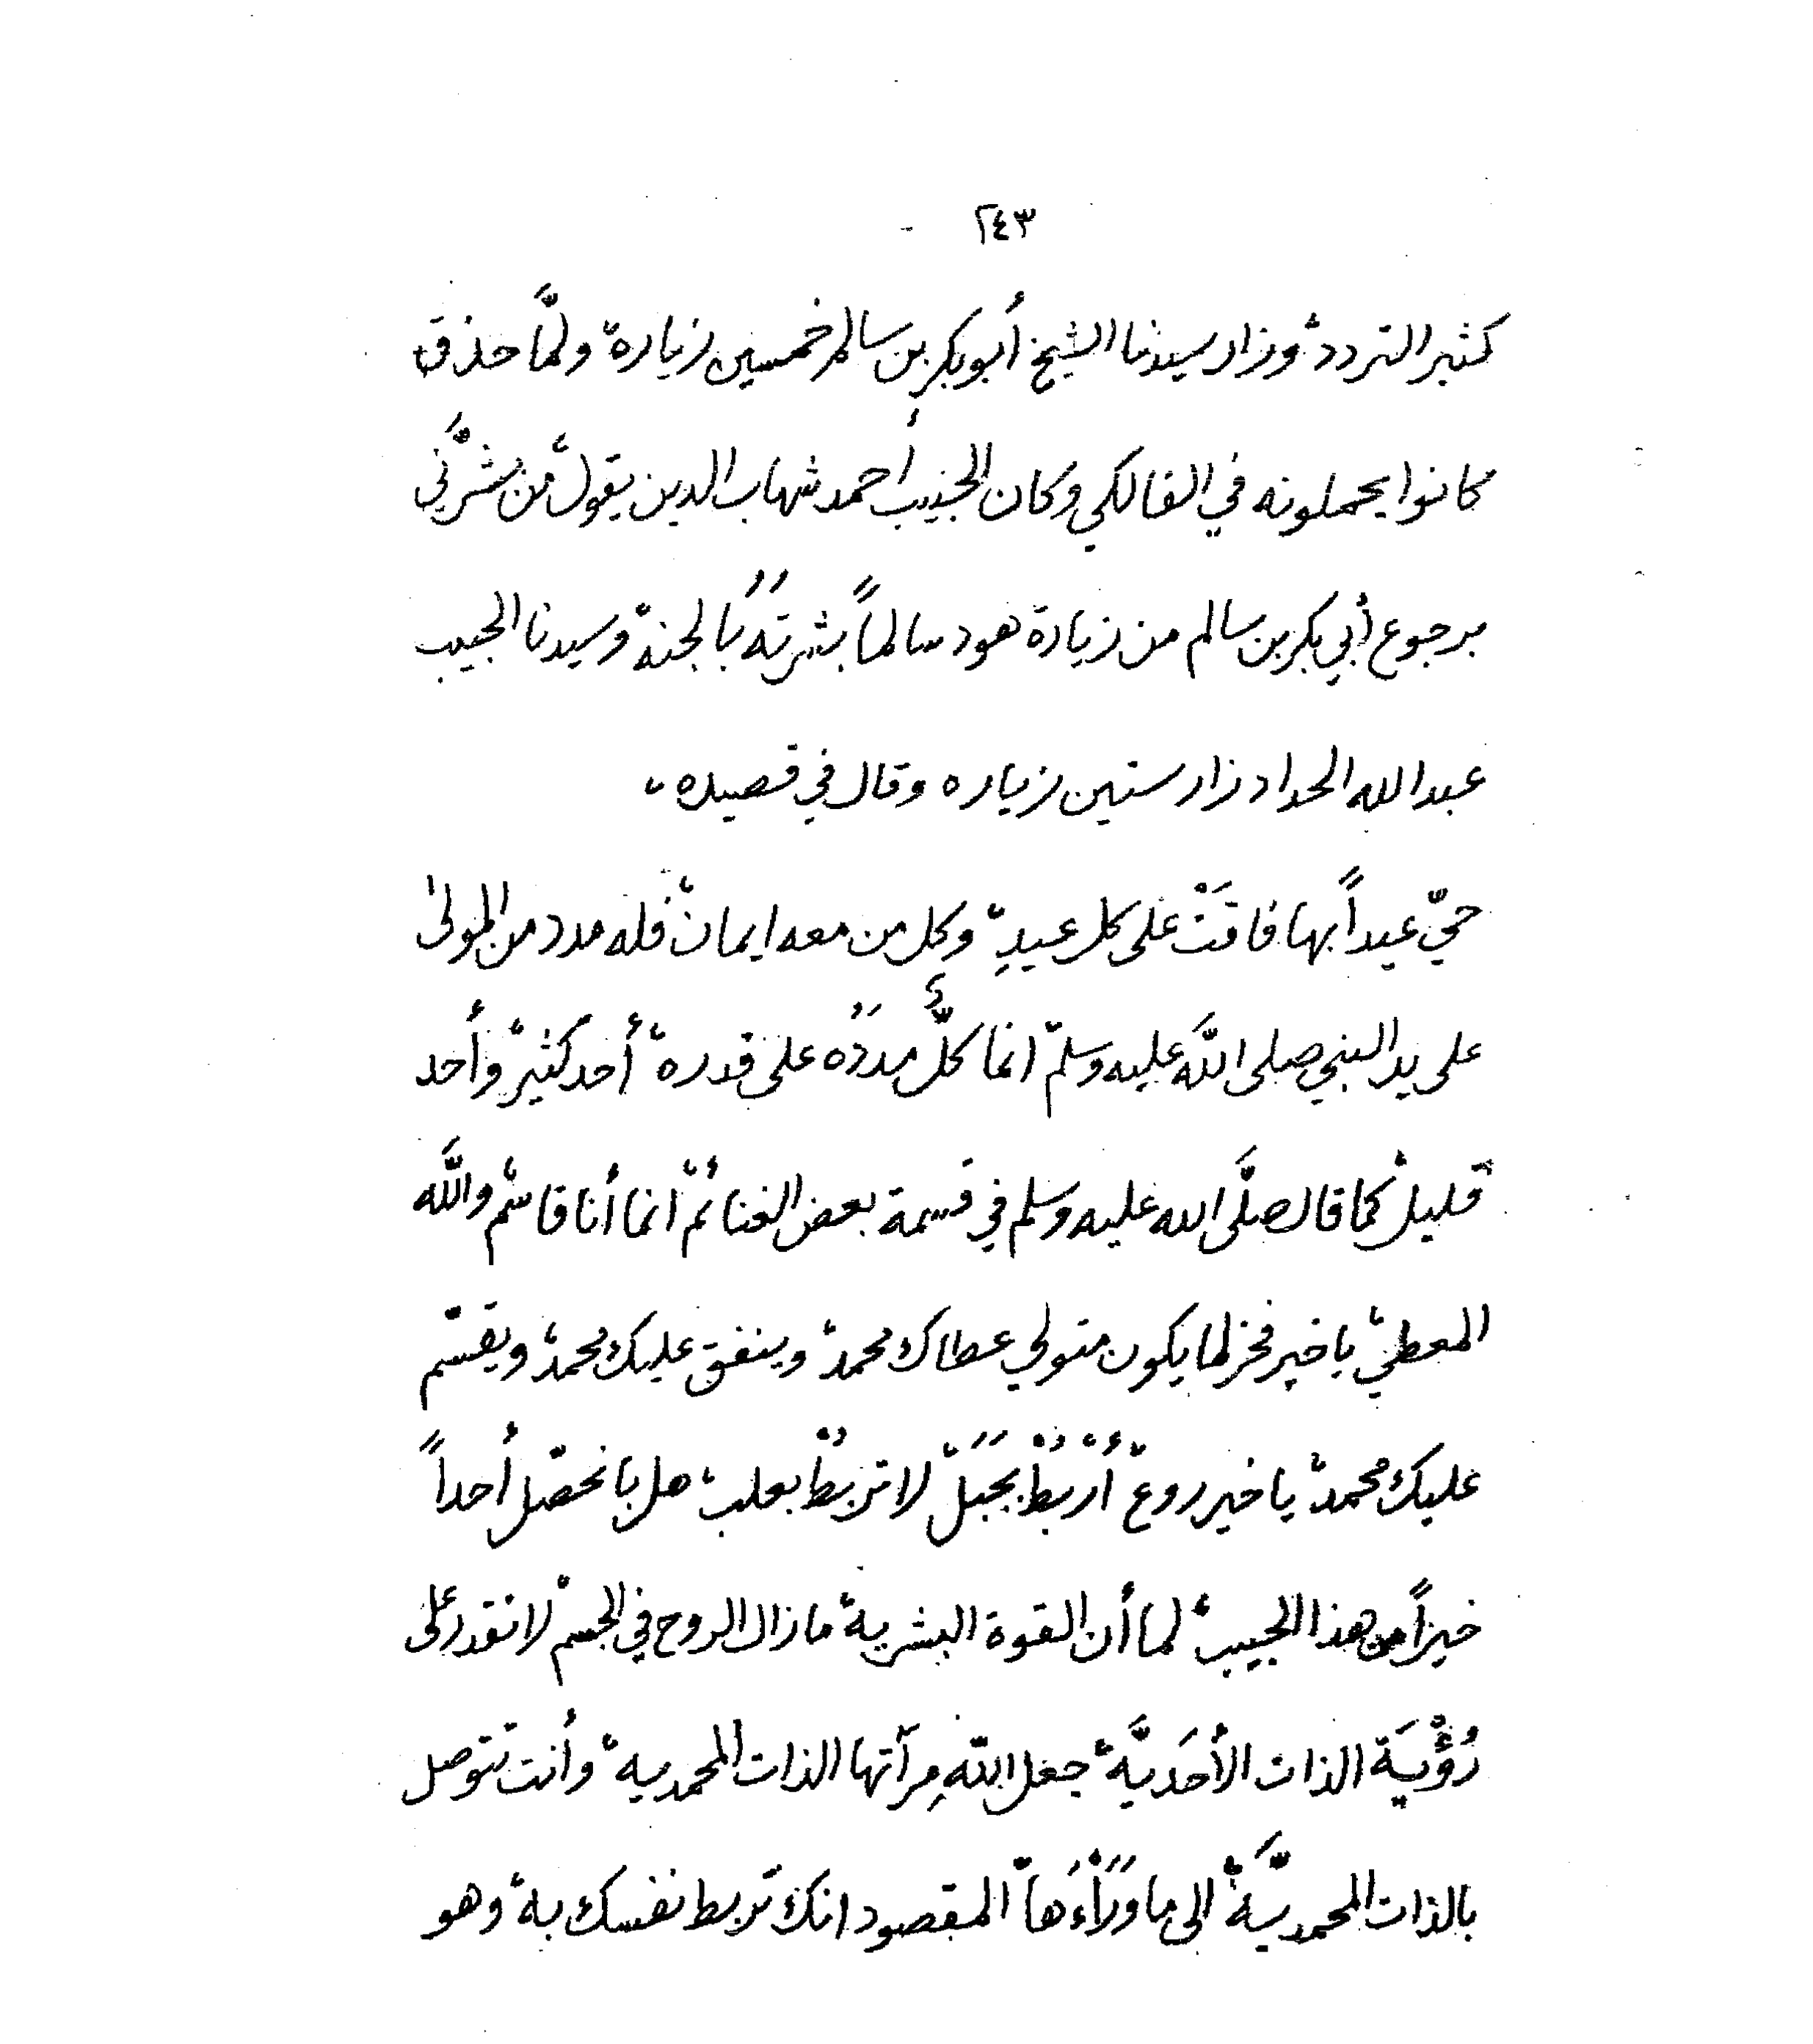 ٢٤٣
كثير التردد، وزار سيدنا الشيخ أبوبكر بن سالم خمسين زيارة، ولمَّا حذق
كانوا يحملونه في الفالكي وكان الحبيب أحمد شهاب الدين يقول، من بشَّرني
برجوع أبي بكر بن سالم من زيارة هود سالماً بشرتُهُ بالجنة، وسيدنا الحبيب
عبدالله الحداد زار ستين زياره وقال في قصيده،
حيّ عيداً بها فاقَتْ على كل عيدِ، وكل من معه ايمان، فله مدد من المولى
على يد النبي صلى اللَّه عليه وسلم، انما كلٌّ مددُه على قدره، أحد كثير، وأحد
قليل، كما قال صلَّى الله عليه وسلم في قسمة بعض الغنائم، انما أنا قاسم، واللَّه
المعطي، يا خير فخر لما يكون متولي عطاك محمد، وينفق عليك محمد، ويقسّم
عليك محمد، يا خير روع، أُرْبُطْ بجَبَلْ لا تربُطْ بعلب، هل با نحصّل أحداً
خيراً من هذا الحبيب، لما أن القوة البشرية، ما زال الروح في الجسم، لا نقدر على
رُؤْيَة الذات الأحَديَّة، جعل اللّه مِرآتها الذات المحمديه، وأنت تتوصل
بالذات المحمديَّة، الى ما وَرَاْءَهَا، المقصود انك تربط نفسك به، وهو